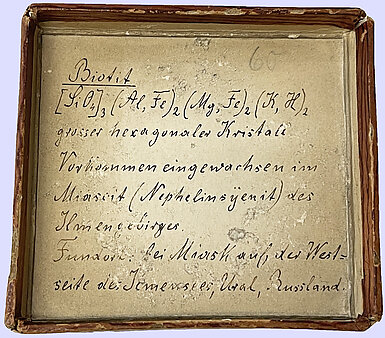 60
Biotit
[SiO₄]₃ (Al, Fe)₂ (Mg, Fe)₂ (K, H)₂
grosser hexagonaler Kristall
Vorkommen eingewachsen im
Miascit (Nephelinsÿenit) des
Ilmengebirges.
Fundort: bei Miask auf der West-
seite des Ilmensees, Ural, Russland.